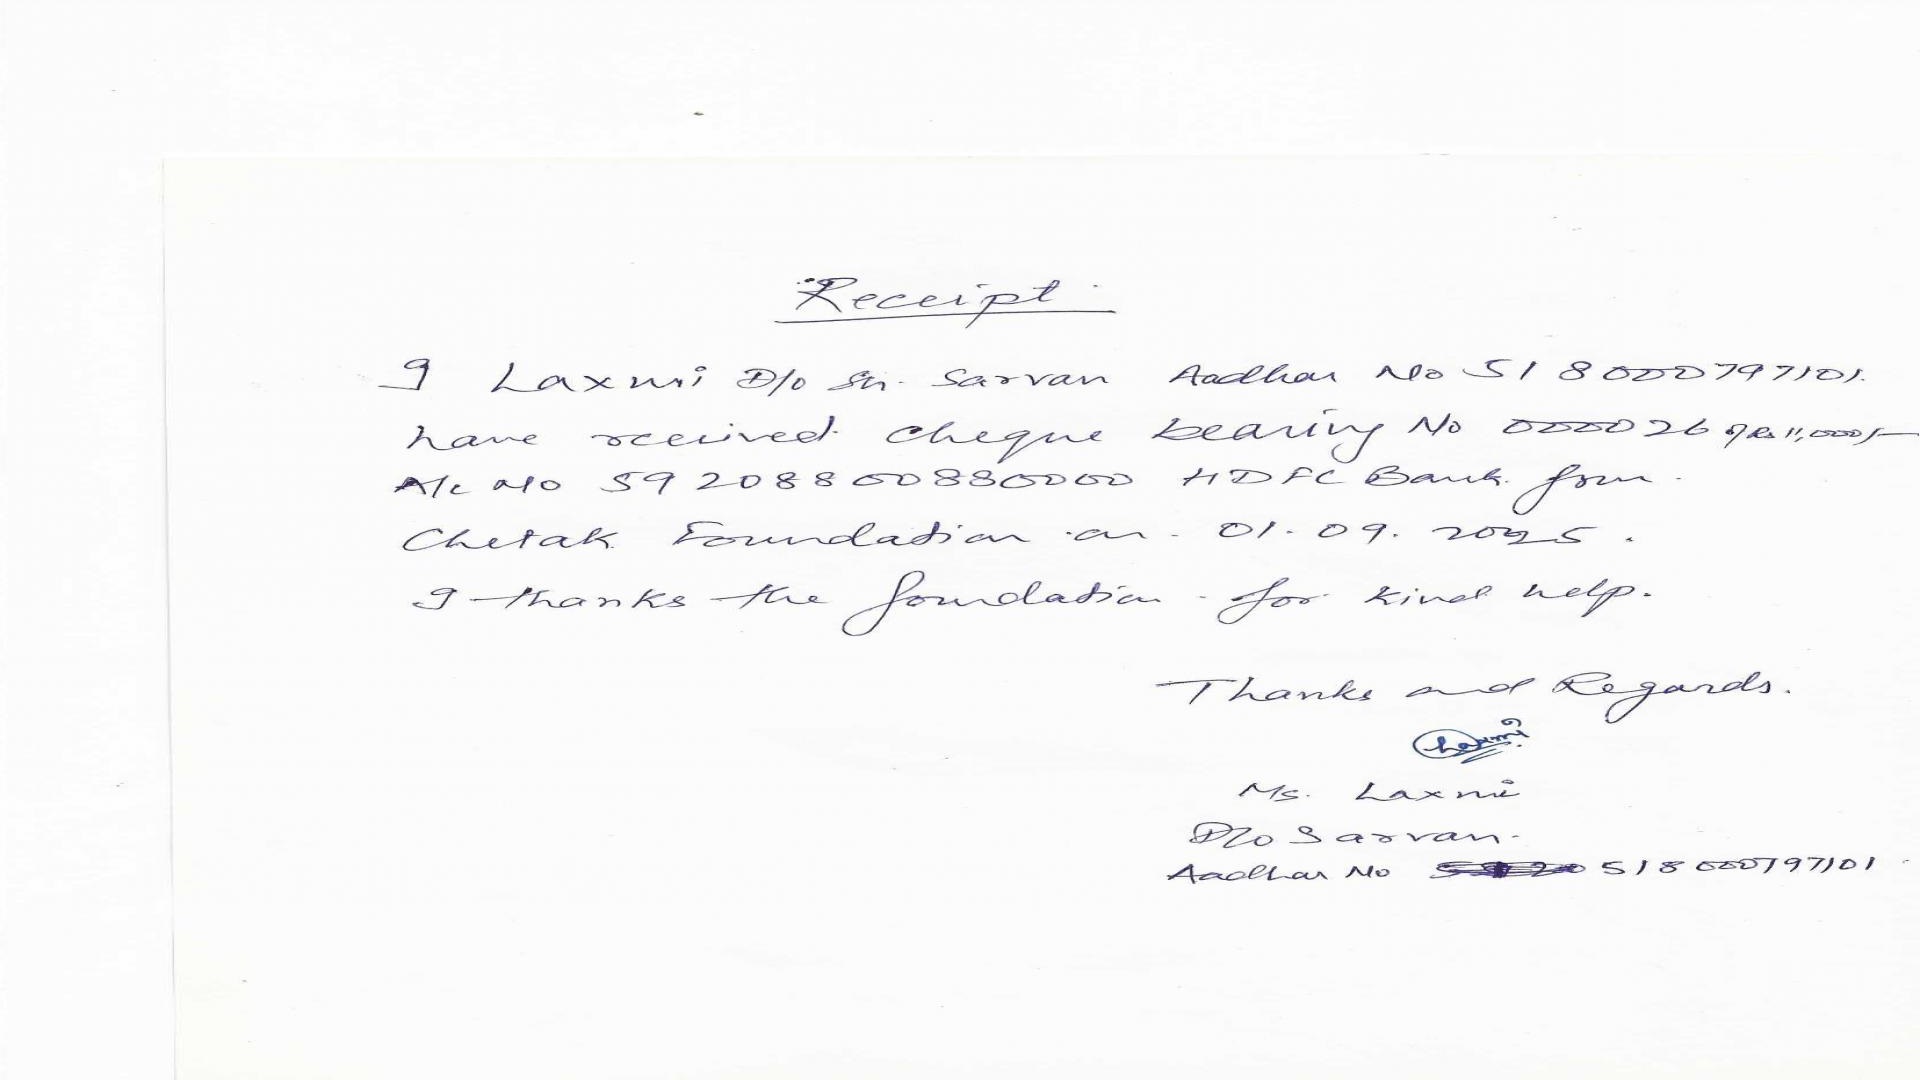 Receipt
I Laxmi D/o Sh. Sarvan Aadhar No 518000797101.
have received cheque bearing No 000026 of Rs 11,000/-
A/c No 59208800880000 HDFC Bank from
Chetak Foundation on 01.09.2025.
I thanks the foundation for kind help.
Thanks and Regards.
Laxmi
Ms. Laxmi
D/o Sarvan
Aadhar No 518000797101